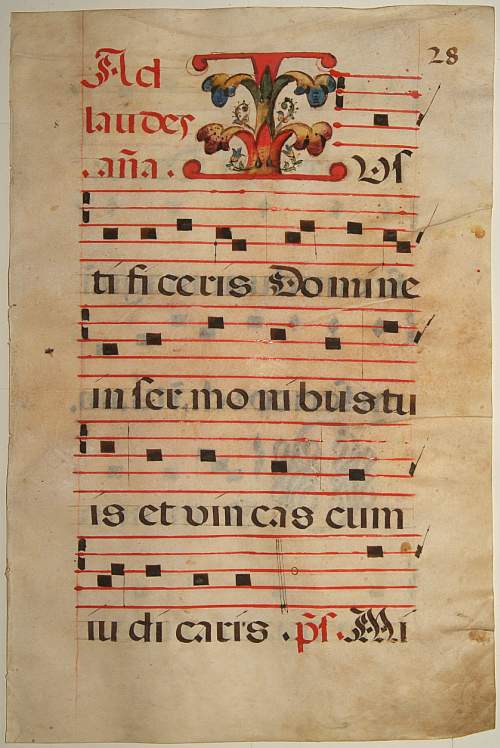 28
Ad
laudes
.aña. IUs
ti fi ceris Domine
in ser mo ni bus tu
is et vin cas cum
iu di caris . ps. Mi